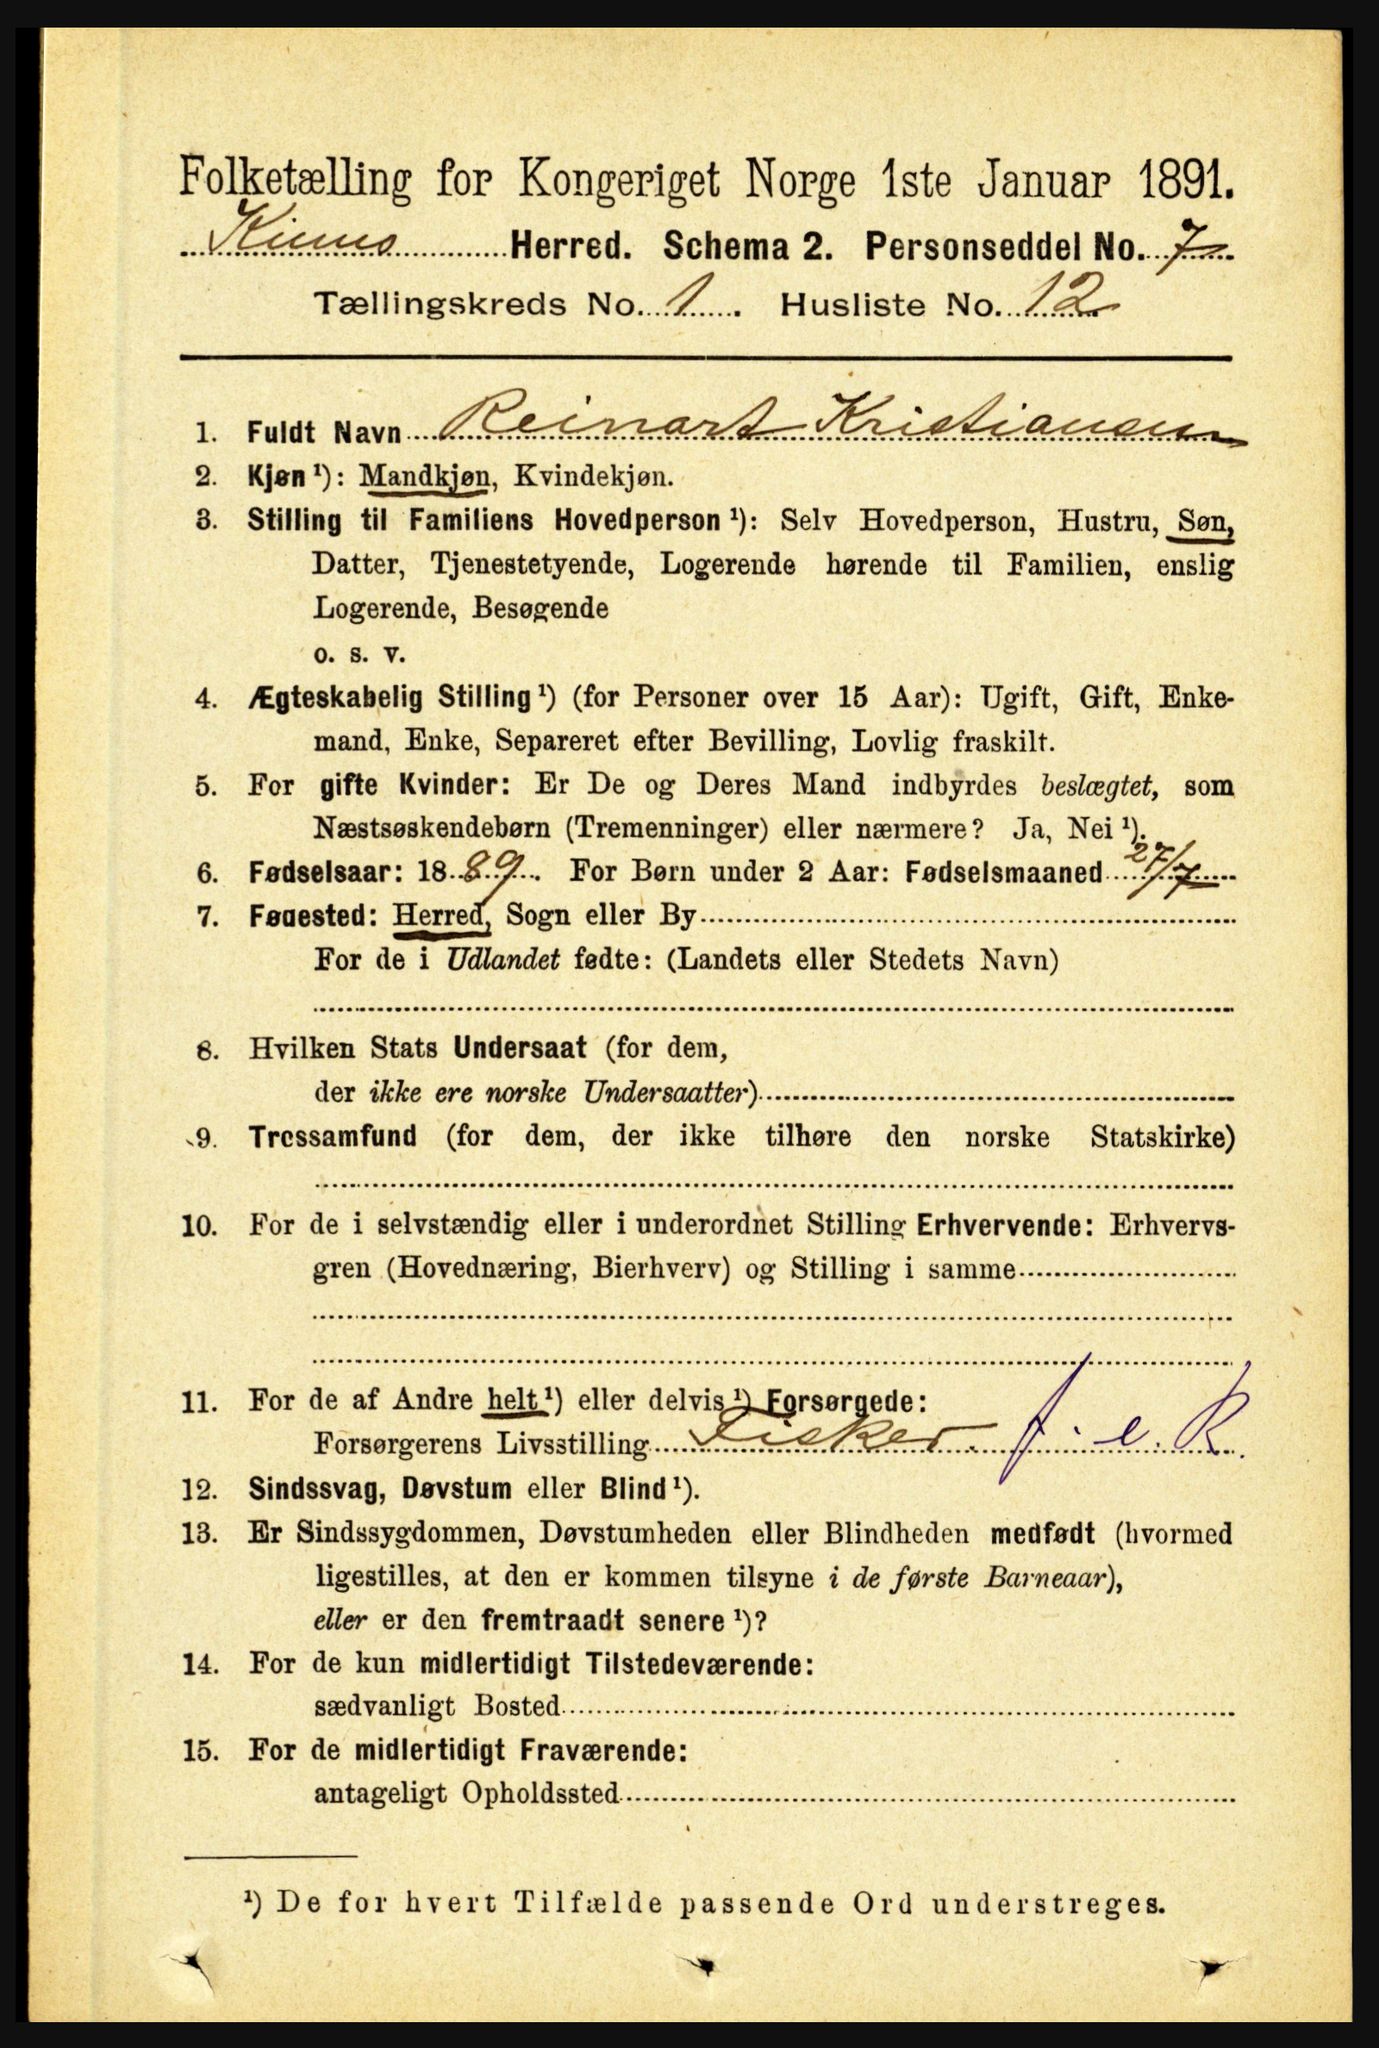 Folketælling for Kongeriget Norge 1ste Januar 1891.
Kinns Herred. Schema 2. Personseddel No. 7
Tællingskreds No. 1. Husliste No. 12
1. Fuldt Navn Reinart Kristiansen
2. Kjøn ¹): Mandkjøn, Kvindekjøn.
3. Stilling til Familiens Hovedperson ¹): Selv Hovedperson, Hustru, Søn,
Datter, Tjenestetyende, Logerende hørende til Familien, enslig
Logerende, Besøgende
o. s. v.
4. Ægteskabelig Stilling ¹) (for Personer over 15 Aar): Ugift, Gift, Enke-
mand, Enke, Separeret efter Bevilling, Lovlig fraskilt.
5. For gifte Kvinder: Er De og Deres Mand indbyrdes beslægtet, som
Næstsøskendebørn (Tremenninger) eller nærmere? Ja, Nei ¹).
6. Fødselsaar: 1889. For Børn under 2 Aar: Fødselsmaaned 27/7
7. Fødested: Herred, Sogn eller By
For de i Udlandet fødte: (Landets eller Stedets Navn)
8. Hvilken Stats Undersaat (for dem,
der ikke ere norske Undersaatter)
9. Trossamfund (for dem, der ikke tilhøre den norske Statskirke)
10. For de i selvstændig eller i underordnet Stilling Erhvervende: Erhvervs-
gren (Hovednæring, Bierhverv) og Stilling i samme
11. For de af Andre helt ¹) eller delvis ¹) Forsørgede:
Forsørgerens Livsstilling Fisker. f. e. R.
12. Sindssvag, Døvstum eller Blind ¹).
13. Er Sindssygdommen, Døvstumheden eller Blindheden medfødt (hvormed
ligestilles, at den er kommen tilsyne i de første Barneaar),
eller er den fremtraadt senere ¹)?
14. For de kun midlertidigt Tilstedeværende:
sædvanligt Bosted
15. For de midlertidigt Fraværende:
antageligt Opholdssted
¹) De for hvert Tilfælde passende Ord understreges.